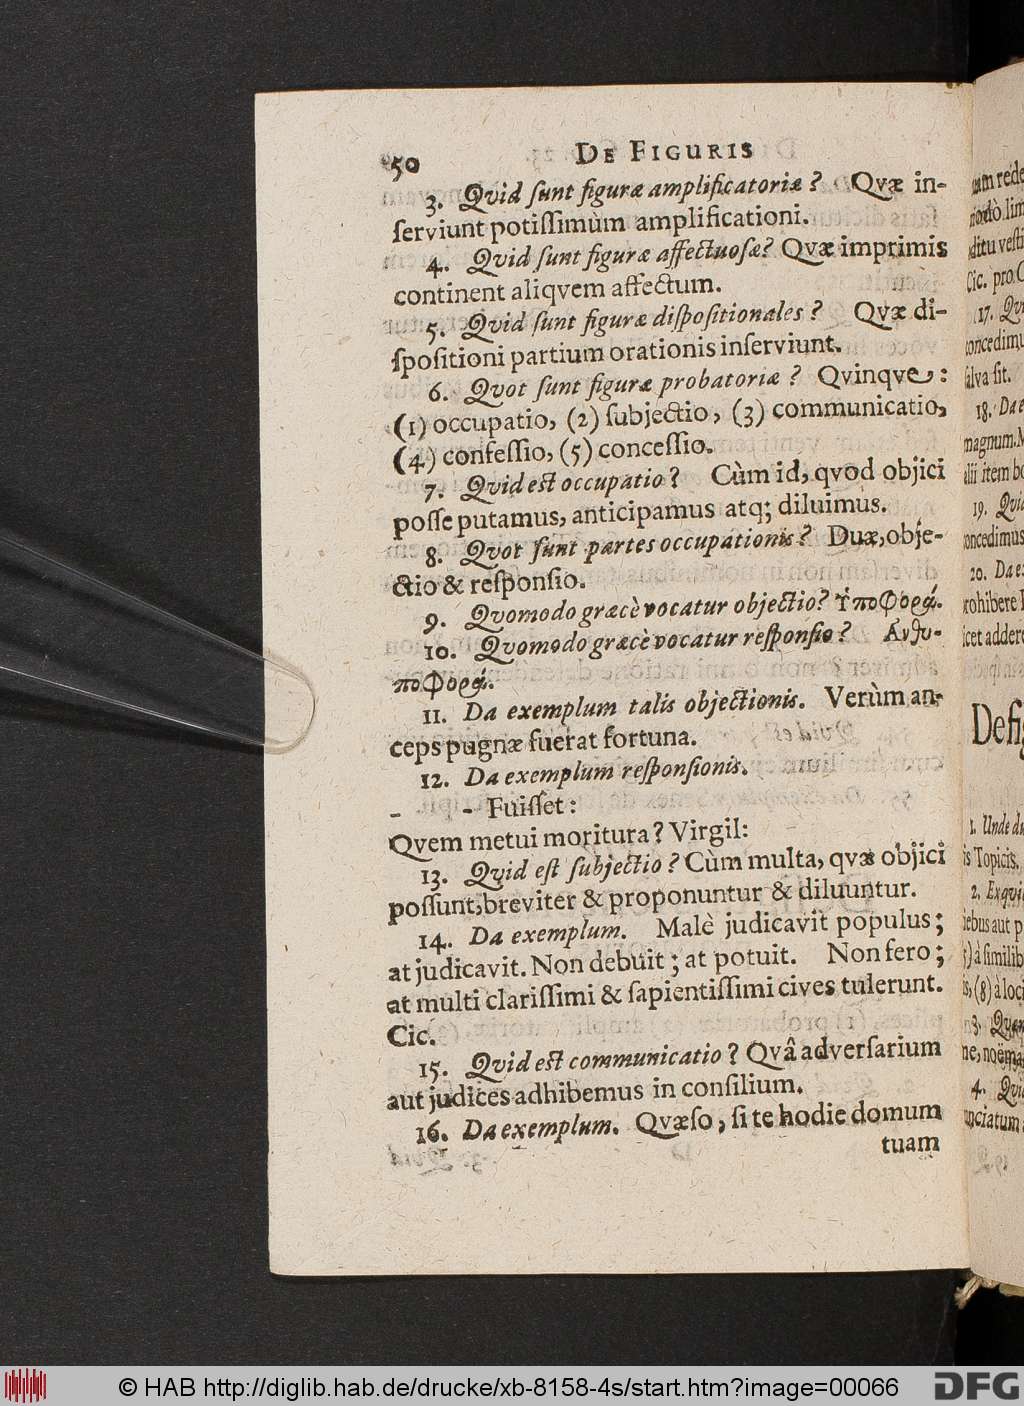 50 DE FIGURIS
3. Qvid ſunt figuræ amplificatoriæ? Qvæ in-
ſerviunt potiſſimùm amplificationi.
4. Qvid ſunt figuræ affectuoſæ? Qvæ imprimis
continent aliqvem affectum.
5. Qvid ſunt figuræ diſpoſitionales? Qvæ di-
ſpoſitioni partium orationis inſerviunt.
6. Qvot ſunt figuræ probatoriæ? Qvinqve:
(1) occupatio, (2) ſubjectio, (3) communicatio,
(4) confeſſio, (5) conceſſio.
7. Qvid est occupatio? Cùm id, qvod objici
poſſe putamus, anticipamus atq; diluimus.
8. Qvot ſunt partes occupationis? Duæ, obje-
ctio & reſponſio.
9. Qvomodo græcè vocatur objectio? Ὑποφορά.
10. Qvomodo græcè vocatur reſponſio? Ἀνθυ-
ποφορά.
11. Da exemplum talis objectionis. Verùm an-
ceps pugnæ fuerat fortuna.
12. Da exemplum reſponſionis.
- - Fuiſſet:
Qvem metui moritura? Virgil:
13. Qvid eſt ſubjectio? Cùm multa, qvæ objici
poſſunt, breviter & proponuntur & diluuntur.
14. Da exemplum. Malè judicavit populus;
at judicavit. Non debuit; at potuit. Non fero;
at multi clariſſimi & ſapientiſſimi cives tulerunt.
Cic.
15. Qvid est communicatio? Qvâ adverſarium
aut judices adhibemus in conſilium.
16. Da exemplum. Qvæſo, ſi te hodie domum
tuam
© HAB http://diglib.hab.de/drucke/xb-8158-4s/start.htm?image=00066
DFG